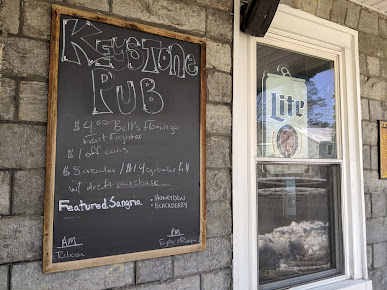 Keystone
Pub
$4.00 Bell's Flamingo
Fruit Fighter
$1 off cans
$5 crowler / $14 growler fill
w/ draft purchase
Featured Sangria : HONEYDEW
BLACKBERRY
AM
PM
Lite